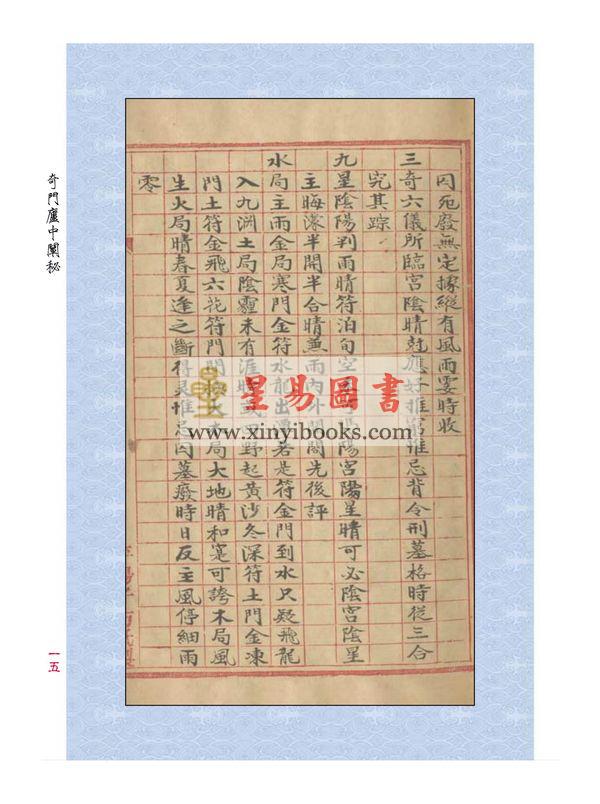 囚死廢無定據縱有風雨霎時收
三奇六儀所臨宮陰晴尅應好推窮惟忌背令刑墓格時從三合
究其踪
九星陰陽判雨晴符泊旬空 陽宮陽星晴可必陰宮陰星
主晦濛半開半合晴無雨內外闔闢先後評
水局主雨金局寒門金符水龍出潭若是符金門到水只疑飛龍
入九淵土局陰霾未有涯時 四野起黃沙冬深符土門金凍
門土符金飛六花符門 火木局大地晴和寔可誇木局風
生火局晴春夏逢之斷得靈惟忌囚墓廢時日反主風停細雨
零
奇門廬中闡秘
一五
星易圖書
www.xinyibooks.com